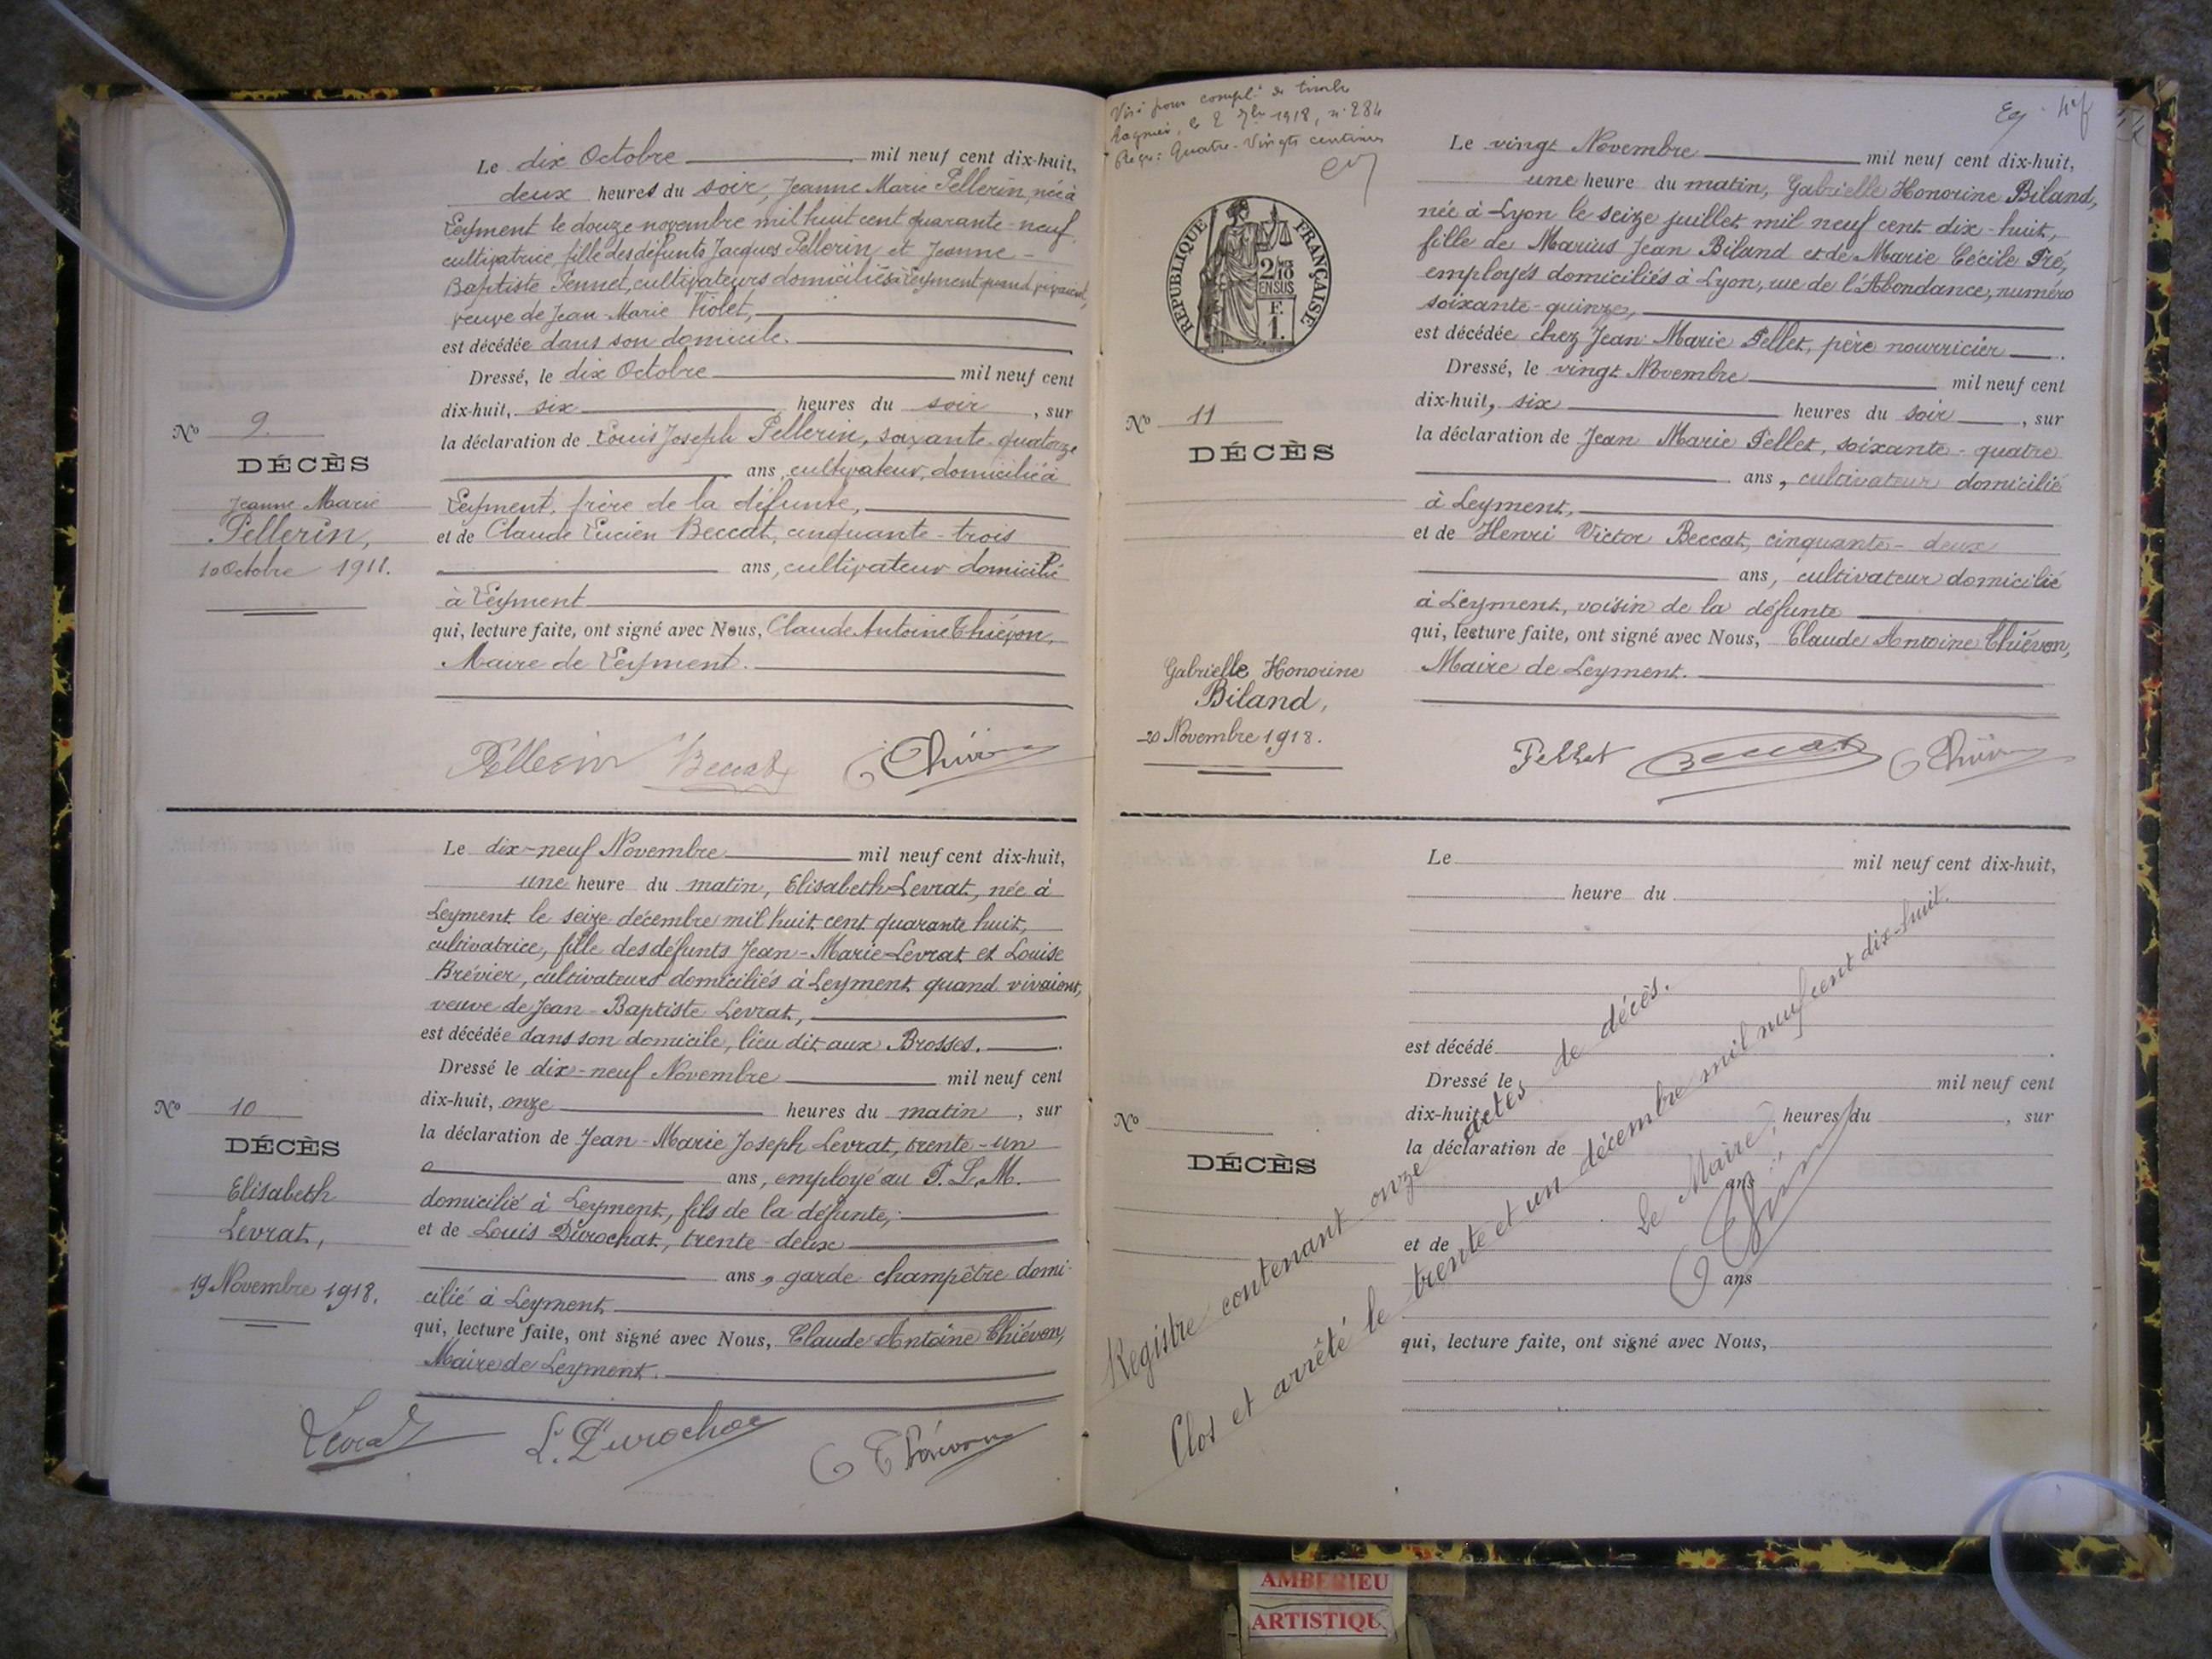 Le dix Octobre mil neuf cent dix-huit,
deux heures du soir, Jeanne Marie Pellerin, née à
Leyment le douze novembre mil huit cent quarante-neuf,
cultivatrice, fille des défunts Jacques Pellerin et Jeanne-
Baptiste Pennet, cultivateurs domiciliés à Leyment quand vivaient,
veuve de Jean-Marie Violet,
est décédée dans son domicile.
Dressé, le dix Octobre mil neuf cent
dix-huit, six heures du soir, sur
la déclaration de Louis Joseph Pellerin, soixante-quatorze
ans, cultivateur, domicilié à
Leyment, frère de la défunte,
et de Claude Lucien Beccat, cinquante-trois
ans, cultivateur domicilié
à Leyment
qui, lecture faite, ont signé avec Nous, Claude Antoine Thiévon,
Maire de Leyment.
No 9
DÉCÈS
Jeanne Marie
Pellerin,
10 Octobre 1918.
Pellerin Beccat C Thiévon
Le dix-neuf Novembre mil neuf cent dix-huit,
une heure du matin, Elisabeth Levrat, née à
Leyment le seize décembre mil huit cent quarante huit,
cultivatrice, fille des défunts Jean-Marie Levrat et Louise
Brévier, cultivateurs domiciliés à Leyment quand vivaient,
veuve de Jean-Baptiste Levrat,
est décédée dans son domicile, lieu dit aux Brosses.
Dressé le dix-neuf Novembre mil neuf cent
dix-huit, onze heures du matin, sur
la déclaration de Jean-Marie Joseph Levrat, trente-un
ans, employé au P.L.M.
domicilié à Leyment, fils de la défunte,
et de Louis Durochat, trente-deux
ans, garde champêtre domi-
cilié à Leyment
qui, lecture faite, ont signé avec Nous, Claude Antoine Thiévon,
Maire de Leyment.
No 10
DÉCÈS
Elisabeth
Levrat,
19 Novembre 1918.
Levrat L. Durochat C Thiévon
Visé pour compl. de timbre
Lagnieu, le 2 7bre 1918, n° 284
Reçu: Quatre-Vingts centimes
RÉPUBLIQUE FRANÇAISE
2/10
EN SUS
F.
1.
Le vingt Novembre mil neuf cent dix-huit,
une heure du matin, Gabrielle Honorine Biland,
née à Lyon le seize juillet mil neuf cent dix-huit,
fille de Marius Jean Biland et de Marie Cécile Pré,
employés domiciliés à Lyon, rue de l'Abondance, numéro
soixante-quinze,
est décédée chez Jean-Marie Pellet, père nourricier.
Dressé, le vingt Novembre mil neuf cent
dix-huit, six heures du soir, sur
la déclaration de Jean Marie Pellet, soixante-quatre
ans, cultivateur domicilié
à Leyment,
et de Henri Victor Beccat, cinquante-deux
ans, cultivateur domicilié
à Leyment, voisin de la défunte
qui, lecture faite, ont signé avec Nous, Claude Antoine Thiévon,
Maire de Leyment.
No 11
DÉCÈS
Gabrielle Honorine
Biland,
20 Novembre 1918.
Pellet Beccat C Thiévon
Le mil neuf cent dix-huit,
heure du
est décédé
Dressé le mil neuf cent
dix-huit, heures du , sur
la déclaration de
ans
et de
ans
qui, lecture faite, ont signé avec Nous,
No
DÉCÈS
Registre contenant onze actes de décès.
Clos et arrêté le trente et un décembre mil neuf cent dix-huit.
Le Maire,
C Thiévon
AMBERIEU
ARTISTIQU